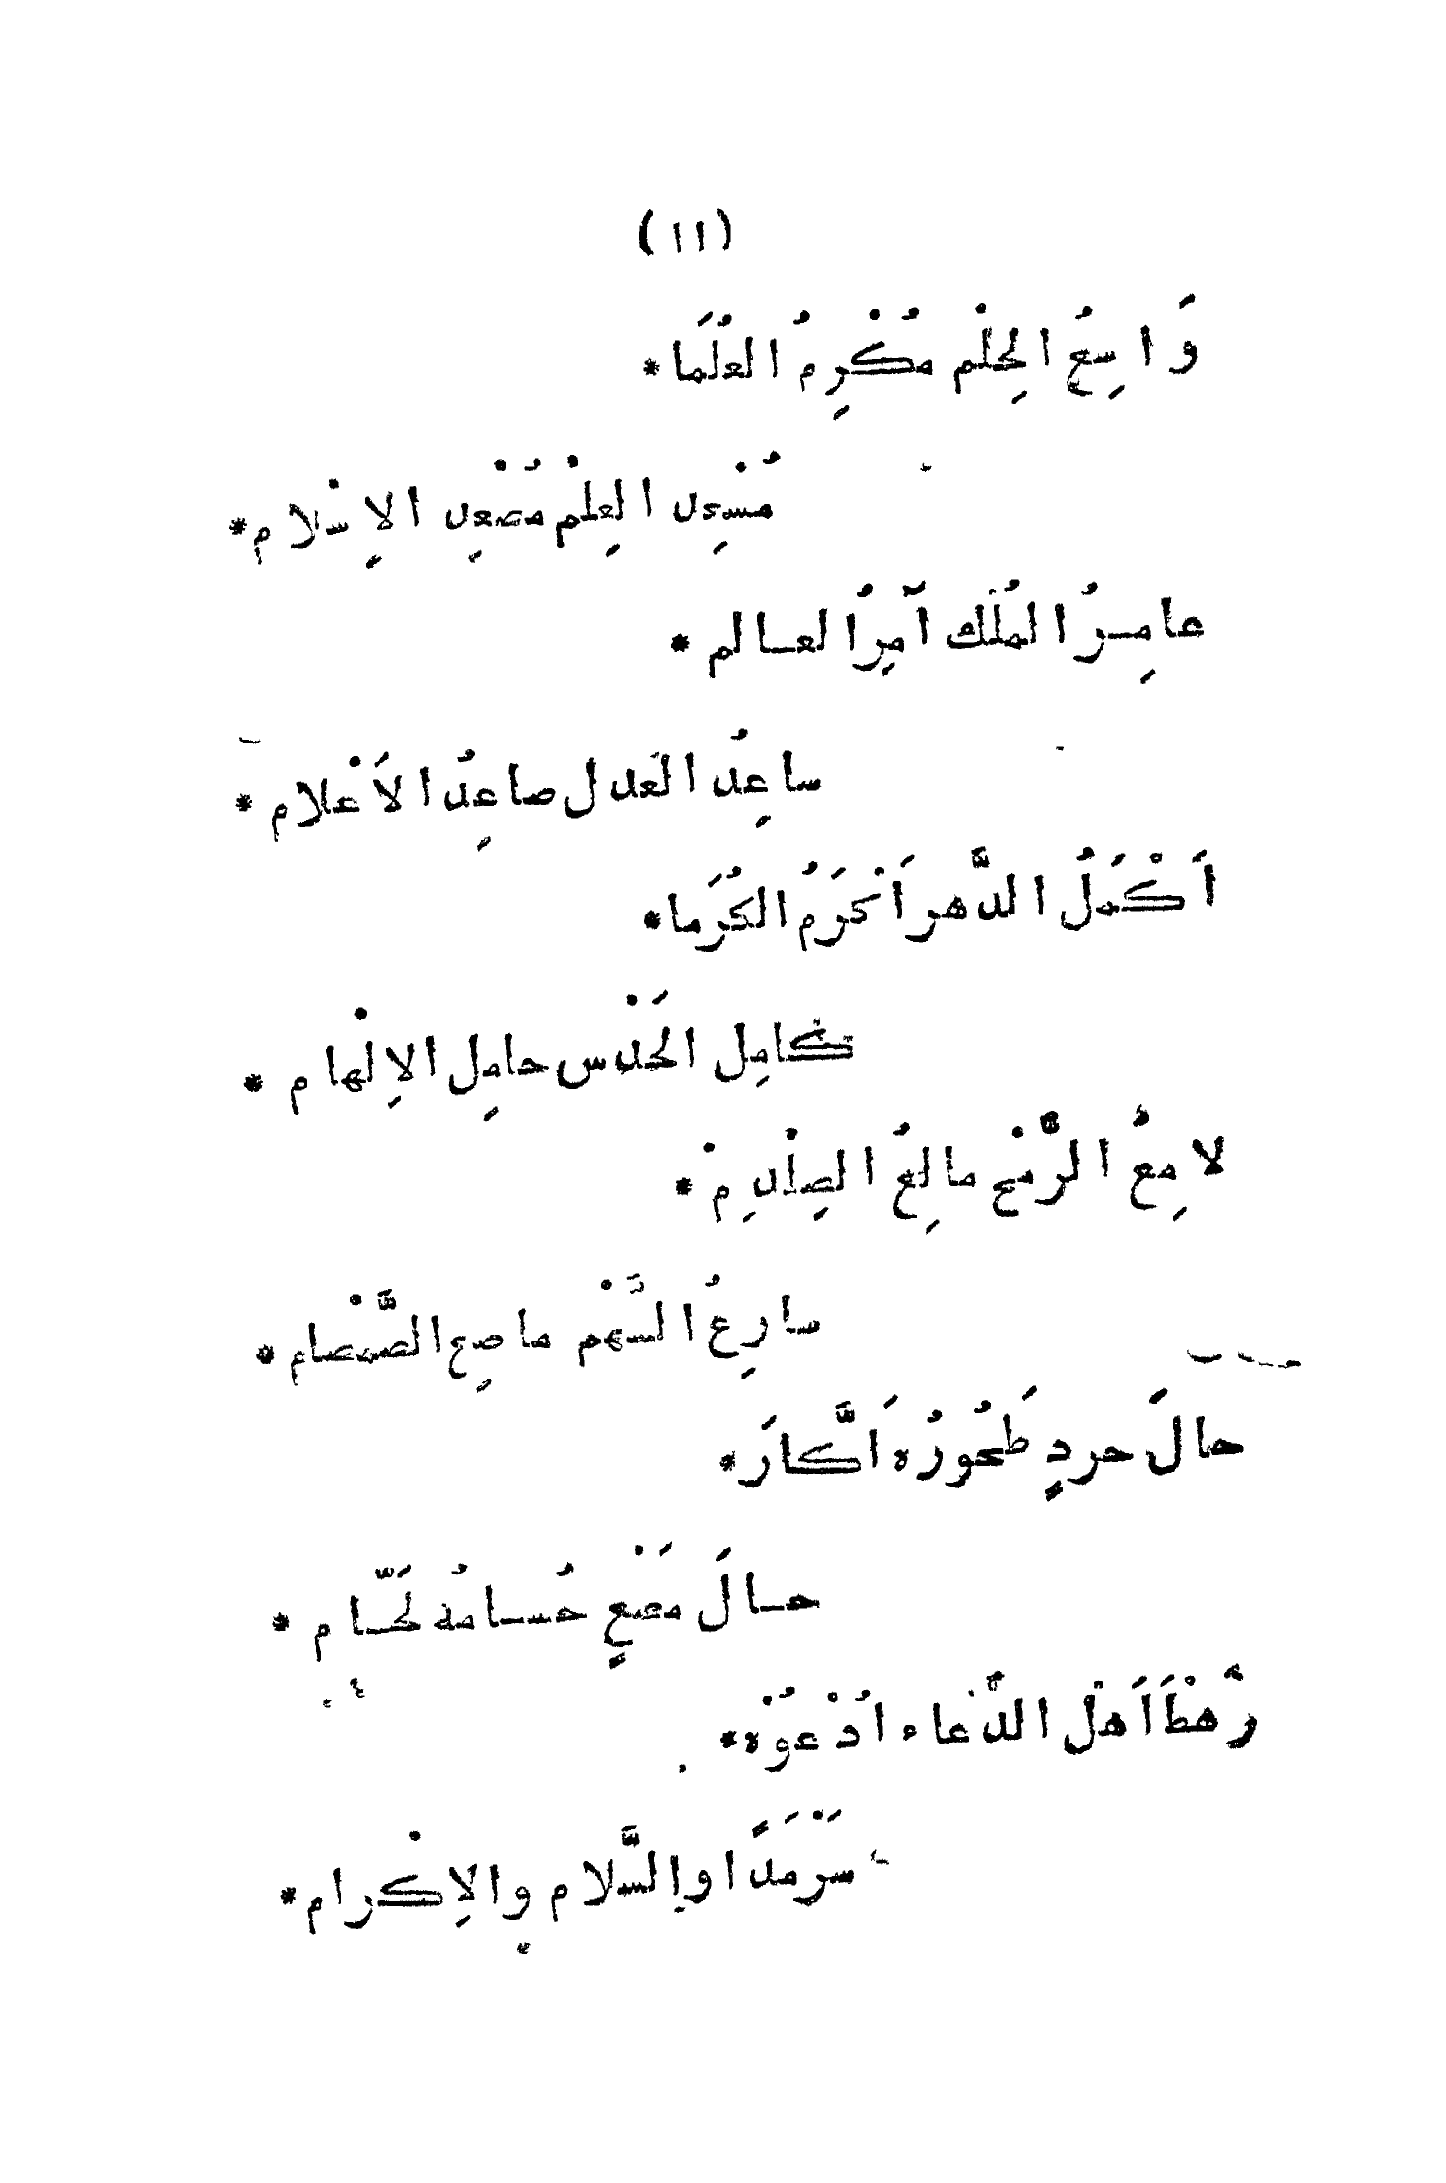 (١١)
وَاسِعُ الحِلْم مُكْرِمُ العُلَمَا *
مُسْعِد العِلْم مُصْعِد الاِسْلام *
عامِرُ الملْك آمِرُ العالم *
ساعِدُ العَدل صاعِدُ الاَعْلام *
اَكْمَلُ الدَّهر اَكْرَمُ الكُرَما *
كامِل الحَدْس حامِل الاِلْهام *
لامِعُ الرُّمْح مالِعُ الصِلْدِمْ *
سارِعُ السَّهْم ماصِع الصَّمْصام *
حالَ حردٍ طَحُورُه اَكَّارَ *
حالَ مَصْعٍ حُسامُه لَحَّام *
رَهْطَ اَهْل الدُّعاء اُدْعُوْه *
سَرْمَدًا والسَّلام والاِكْرام *